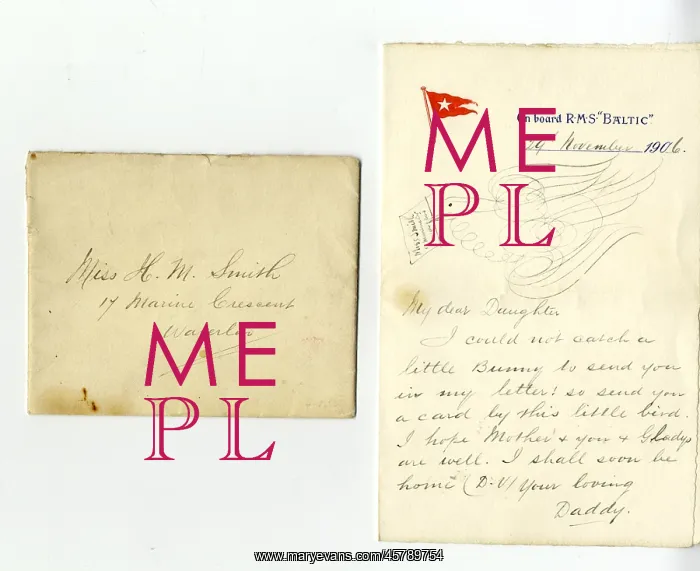 Miss H. M. Smith
17 Marine Crescent
Waterloo
On board R·M·S "BALTIC"
November 1906.
My dear Daughter
I could not catch a
little Bunny to send you
in my letter! so send you
a card by this little bird.
I hope Mother & you & Gladys
are well. I shall soon be
home (D.V) Your loving
Daddy.
ME
PL
ME
PL
www.maryevans.com/45789754